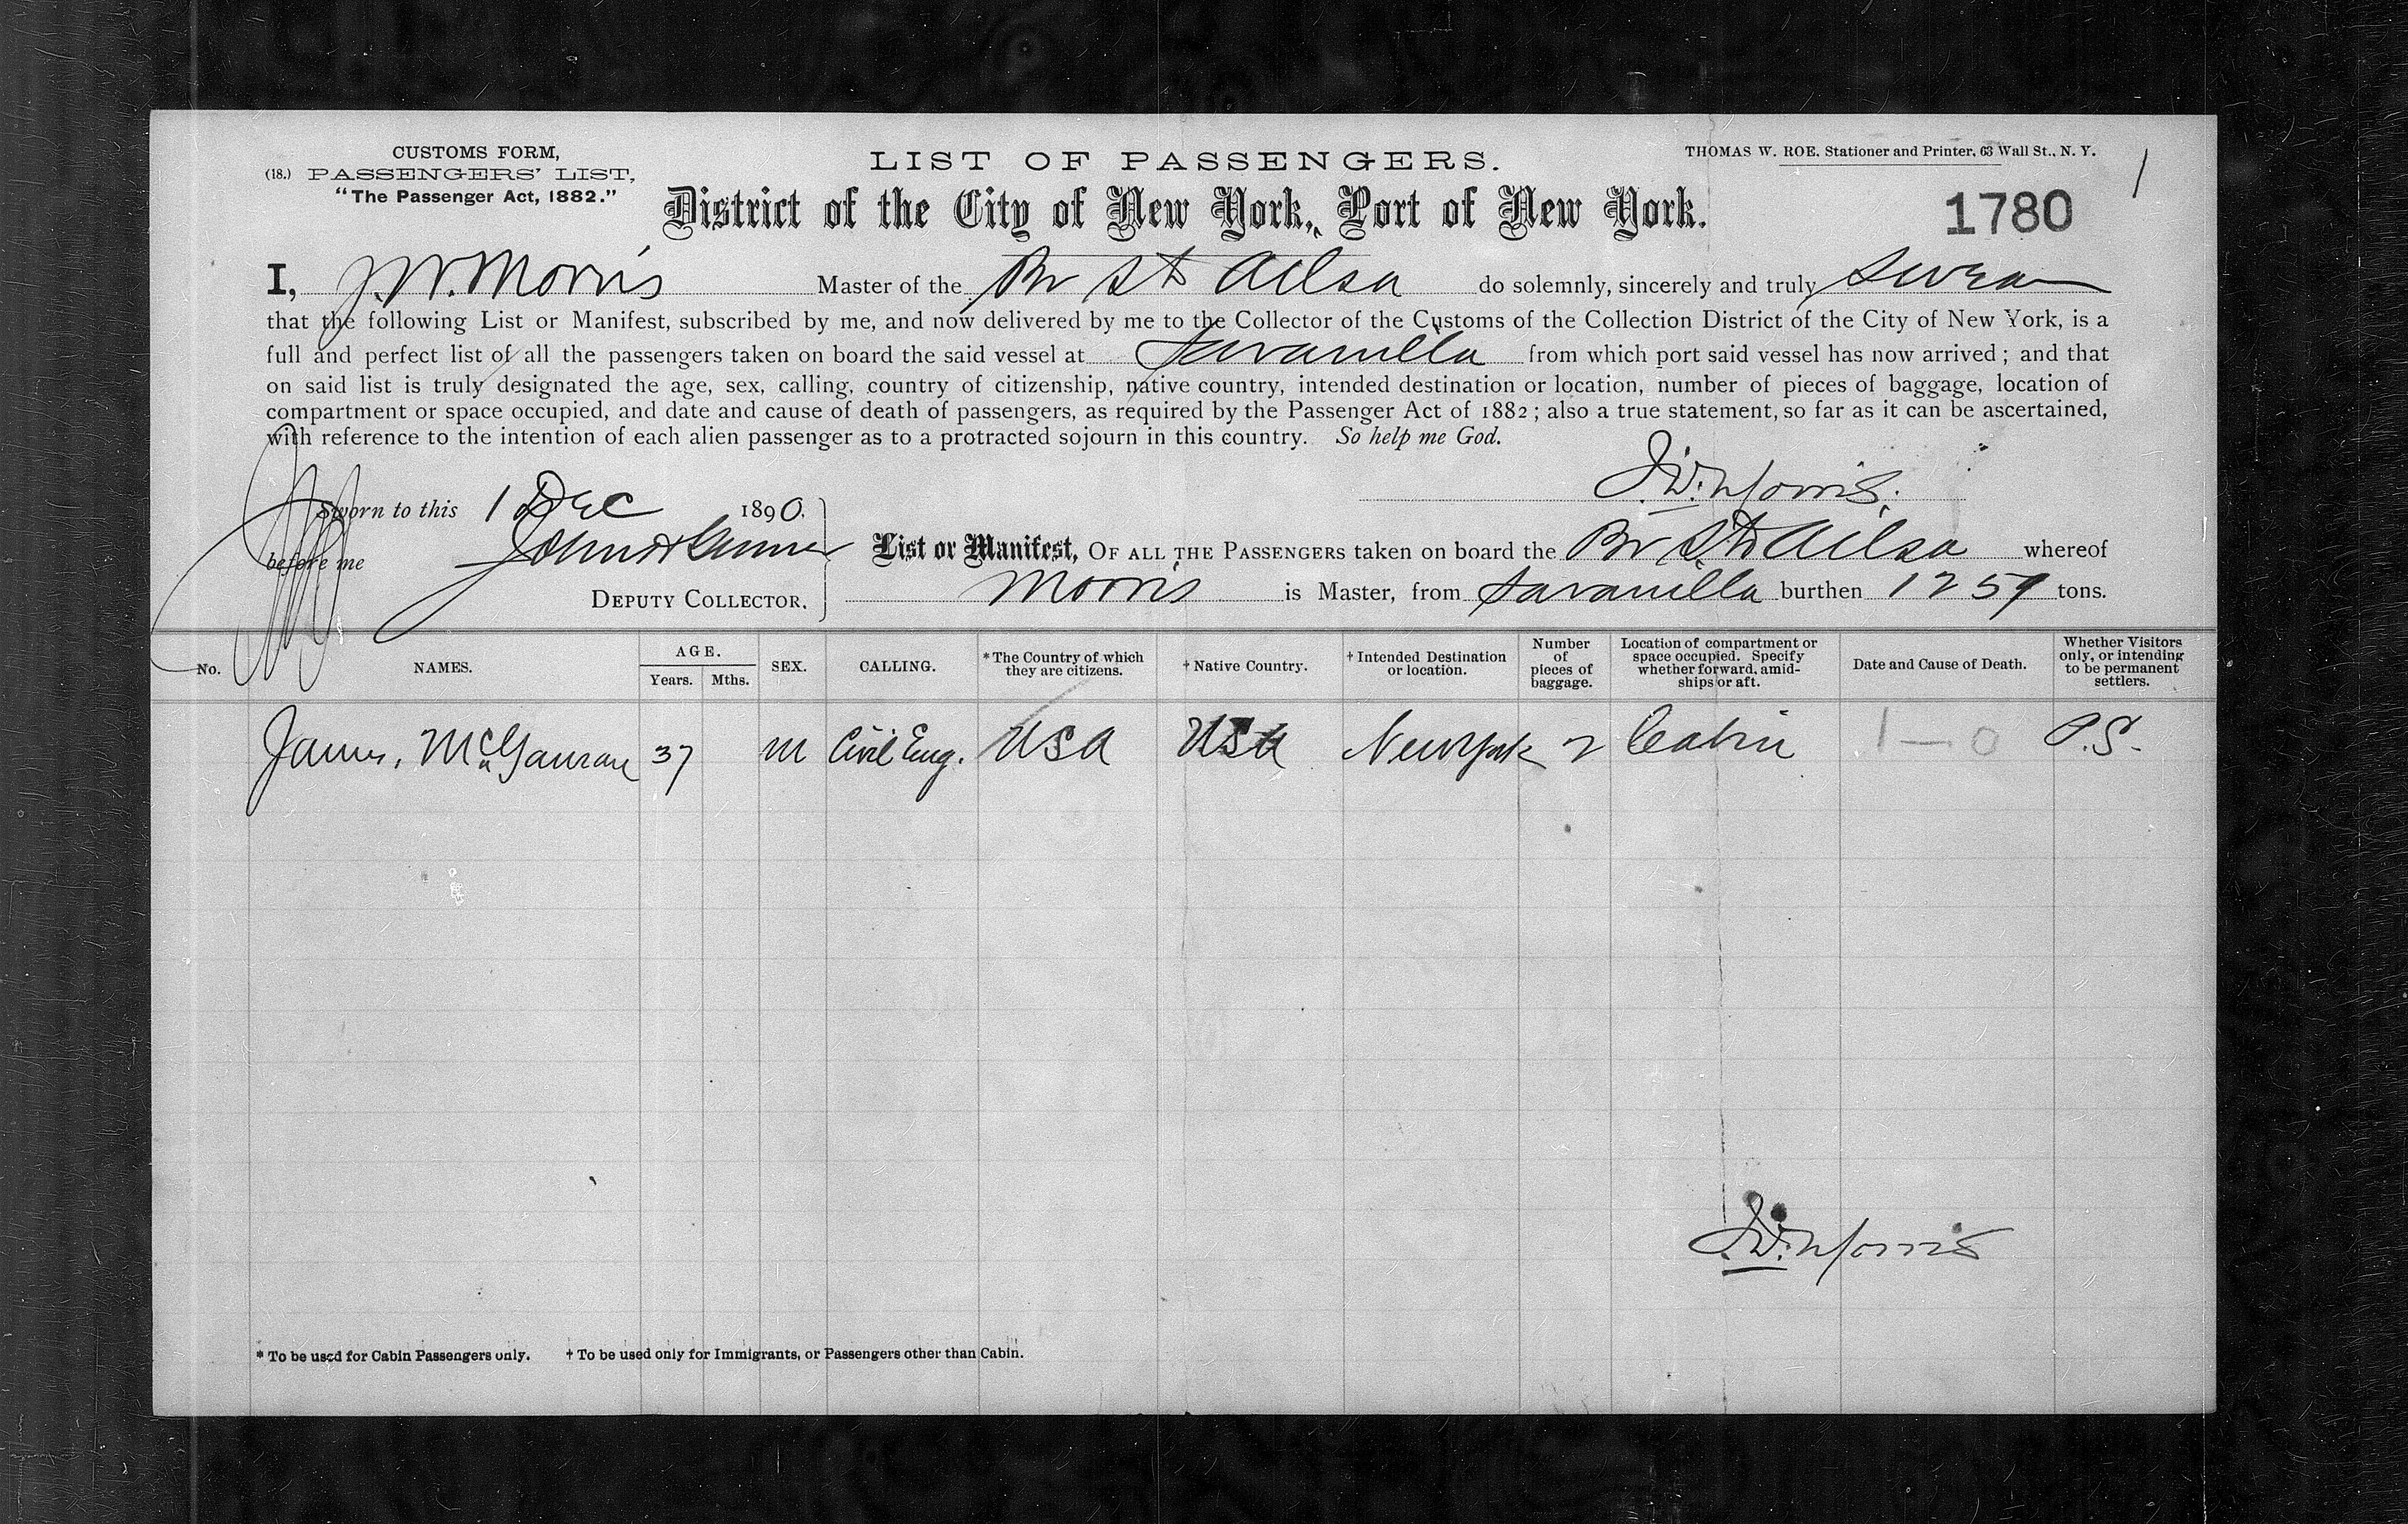 CUSTOMS FORM,
(18.) PASSENGERS' LIST,
"The Passenger Act, 1882."
LIST OF PASSENGERS.
THOMAS W. ROE, Stationer and Printer, 63 Wall St., N. Y.
1
District of the City of New York, Port of New York.
1780
I, J.W. Morris Master of the Br St Ailsa do solemnly, sincerely and truly swear
that the following List or Manifest, subscribed by me, and now delivered by me to the Collector of the Customs of the Collection District of the City of New York, is a
full and perfect list of all the passengers taken on board the said vessel at Savanilla from which port said vessel has now arrived; and that
on said list is truly designated the age, sex, calling, country of citizenship, native country, intended destination or location, number of pieces of baggage, location of
compartment or space occupied, and date and cause of death of passengers, as required by the Passenger Act of 1882; also a true statement, so far as it can be ascertained,
with reference to the intention of each alien passenger as to a protracted sojourn in this country. So help me God.
J.W. Morris.
Sworn to this 1 Dec 1890.
before me John
DEPUTY COLLECTOR.
List or Manifest, OF ALL THE PASSENGERS taken on board the Br St Ailsa whereof
Morris is Master, from Savanilla burthen 1259 tons.
No. NAMES. AGE. Years. Mths. SEX. CALLING. *The Country of which they are citizens. †Native Country. †Intended Destination or location. Number of pieces of baggage. Location of compartment or space occupied. Specify whether forward, amidships or aft. Date and Cause of Death. Whether Visitors only, or intending to be permanent settlers.
James, McGauran 37 M Civil Eng. USA USA New York 2 Cabin 1—0 P.S.
J.W. Morris
* To be used for Cabin Passengers only. † To be used only for Immigrants, or Passengers other than Cabin.